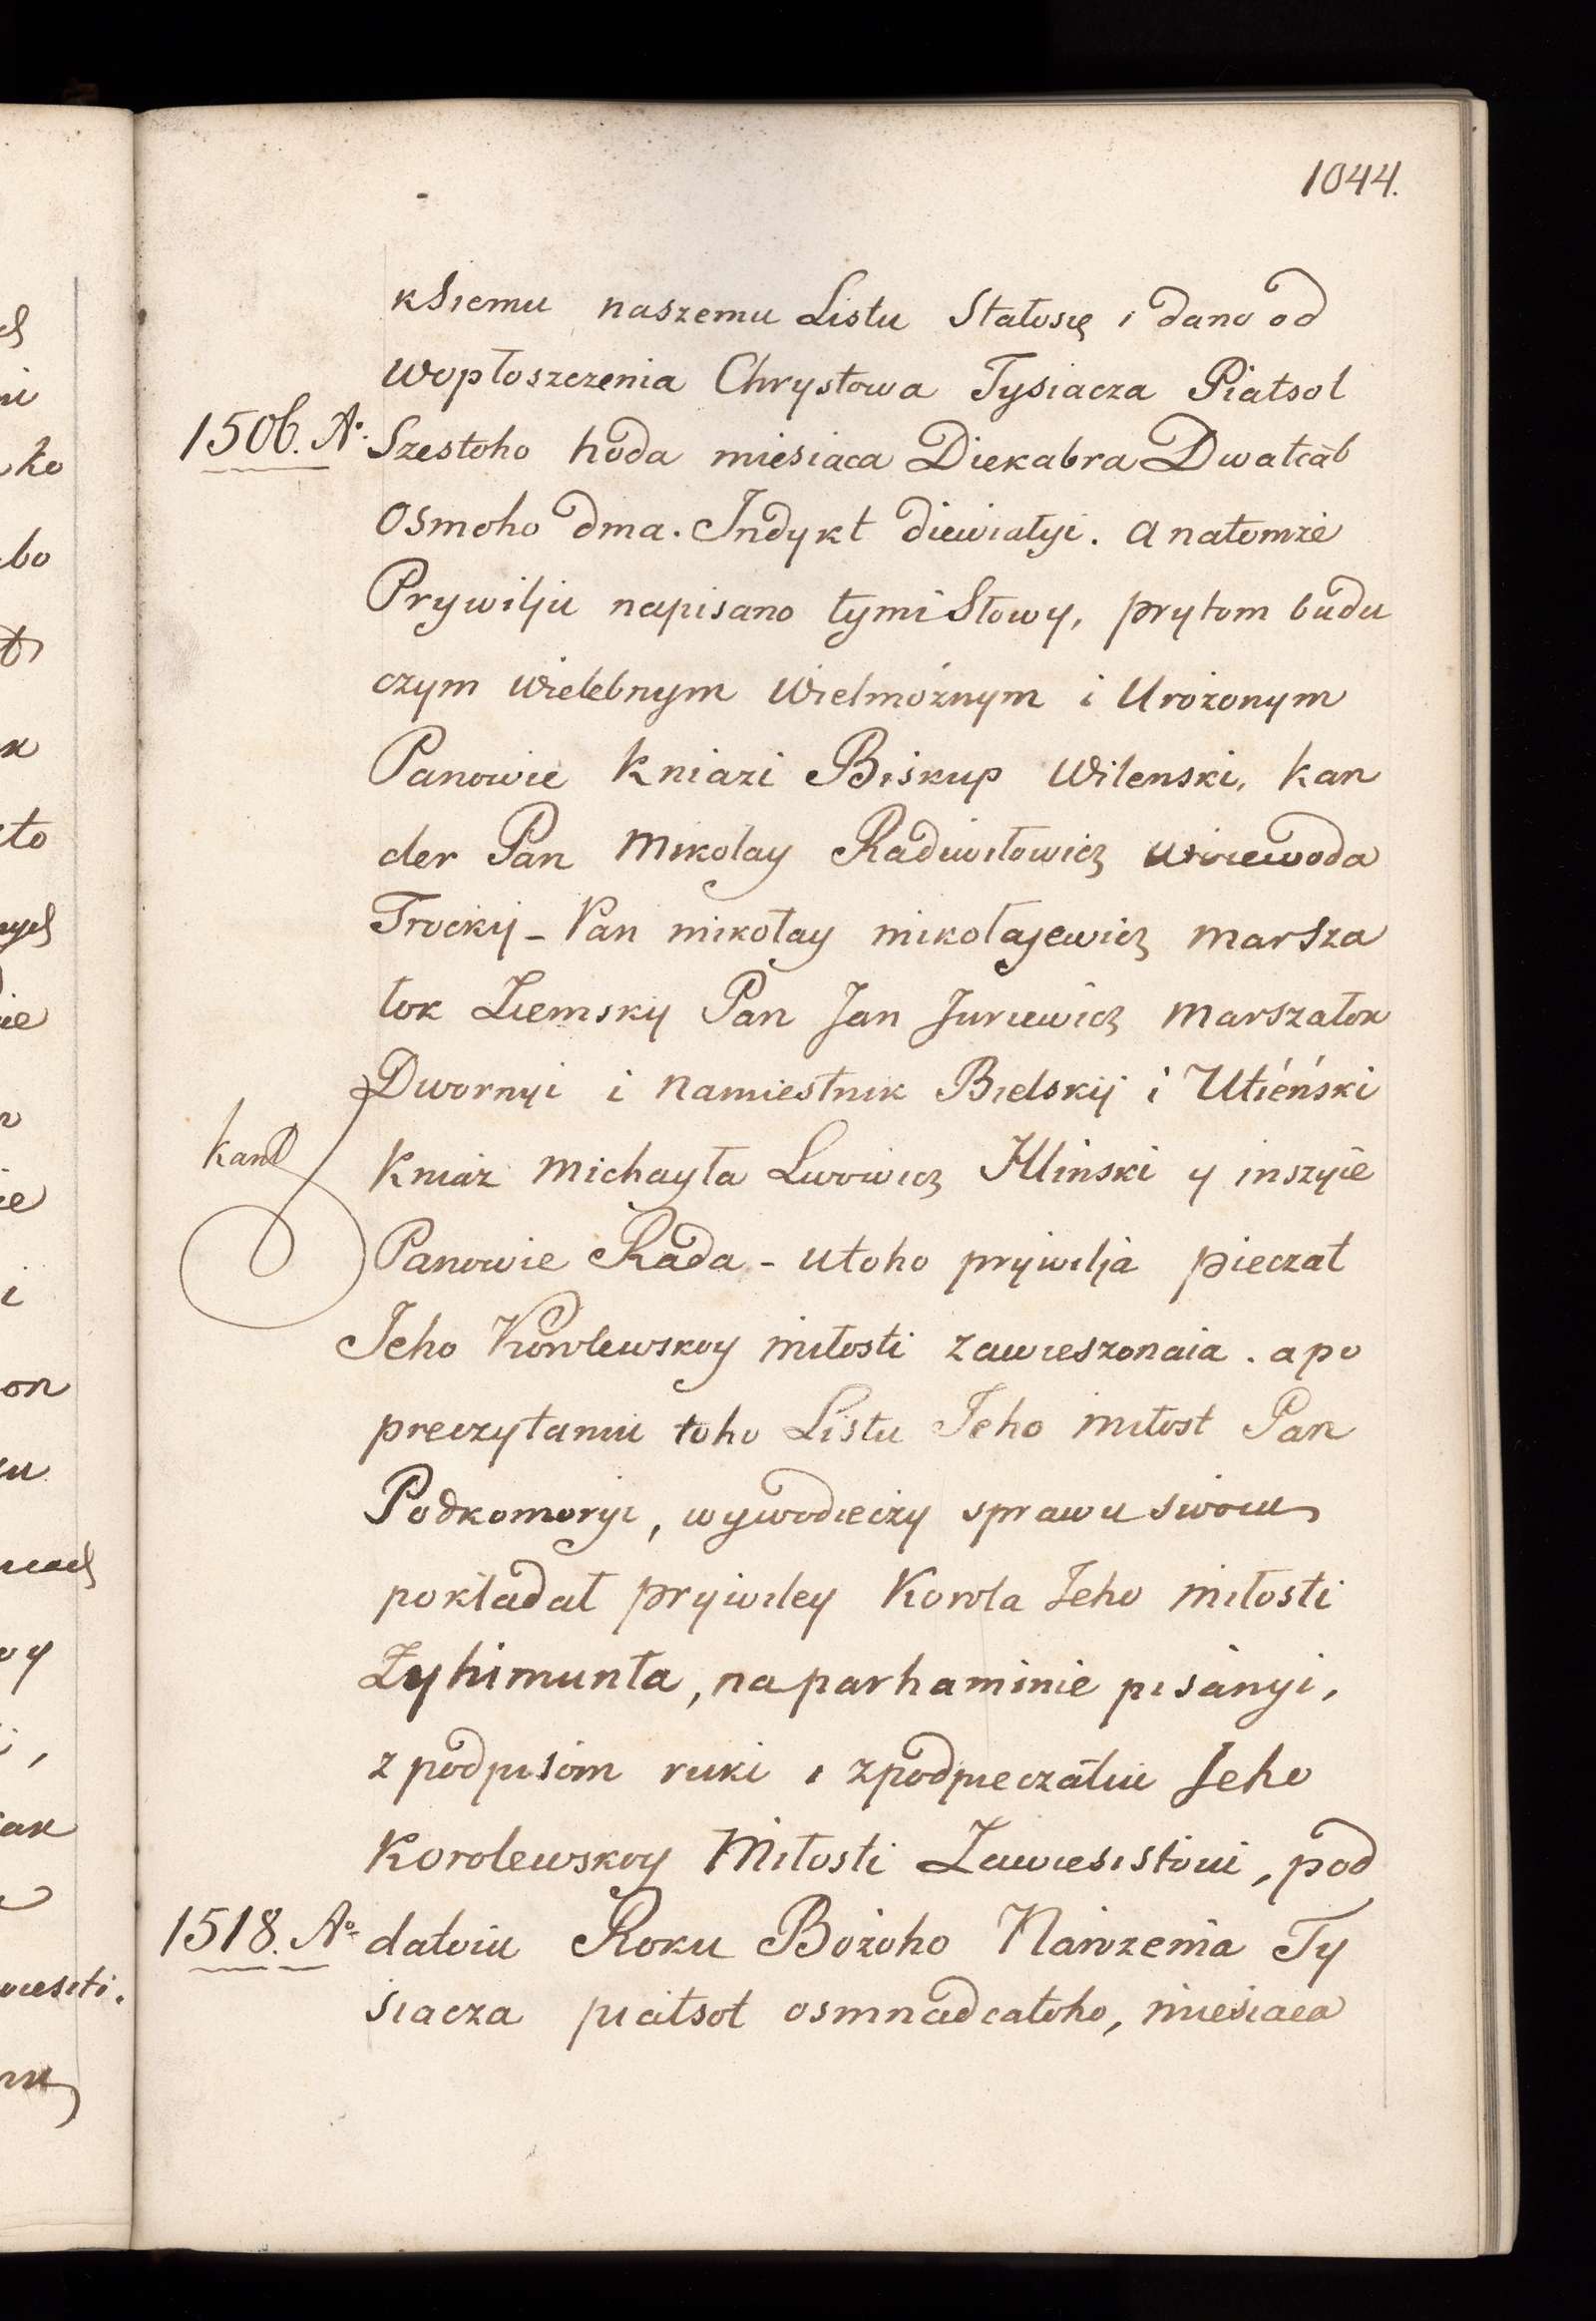 1044.
kSiemu naszemu Listu Stałosię i dano od
Wopłoszczenia Chrystowa Tysiacza Piatsot
1506. Aº. Szestoho hoda miesiaca Diekabra Dwatcàt
Osmoho dma. Indykt diewiatyi. a natomże
Prywilju napisano tymi Słowy, prytom budu
czym Wielebnym Wielmożnym i Urożonym
Panowie Kniazi Biskup Wilenski, kan
der Pan Mikolay Radiwiłowicz woiewoda
Trockij – Pan mikołay mikołajewicz marsza
łok Ziemsky Pan Jan Juriewicz marszałok
Dwornyi i namiestnik Bielskij i Utieński
kand
Kniaż Michayła Lwowicz Hlinski y inszyie
Panowie Rada – utoho prijwilja pieczat
Jeho Korolewskoy miłosti zawieszonaia . a po
preczytaniu toho Listu Jeho miłost Pan
Podkomoryi, wywodieczy sprawu swoiu
pokładał prijwiley Korola Jeho miłosti
Zyhimunta, na parhaminie pisànyi,
z podpisom ruki i zpodpieczàtiu Jeho
Korolewskoy Miłosti Zawiesistoiu, pod
1518. Aº. datoiu Roku Bożoho Narożenia Ty
siacza piatsot osmnadcatoho, miesiaca